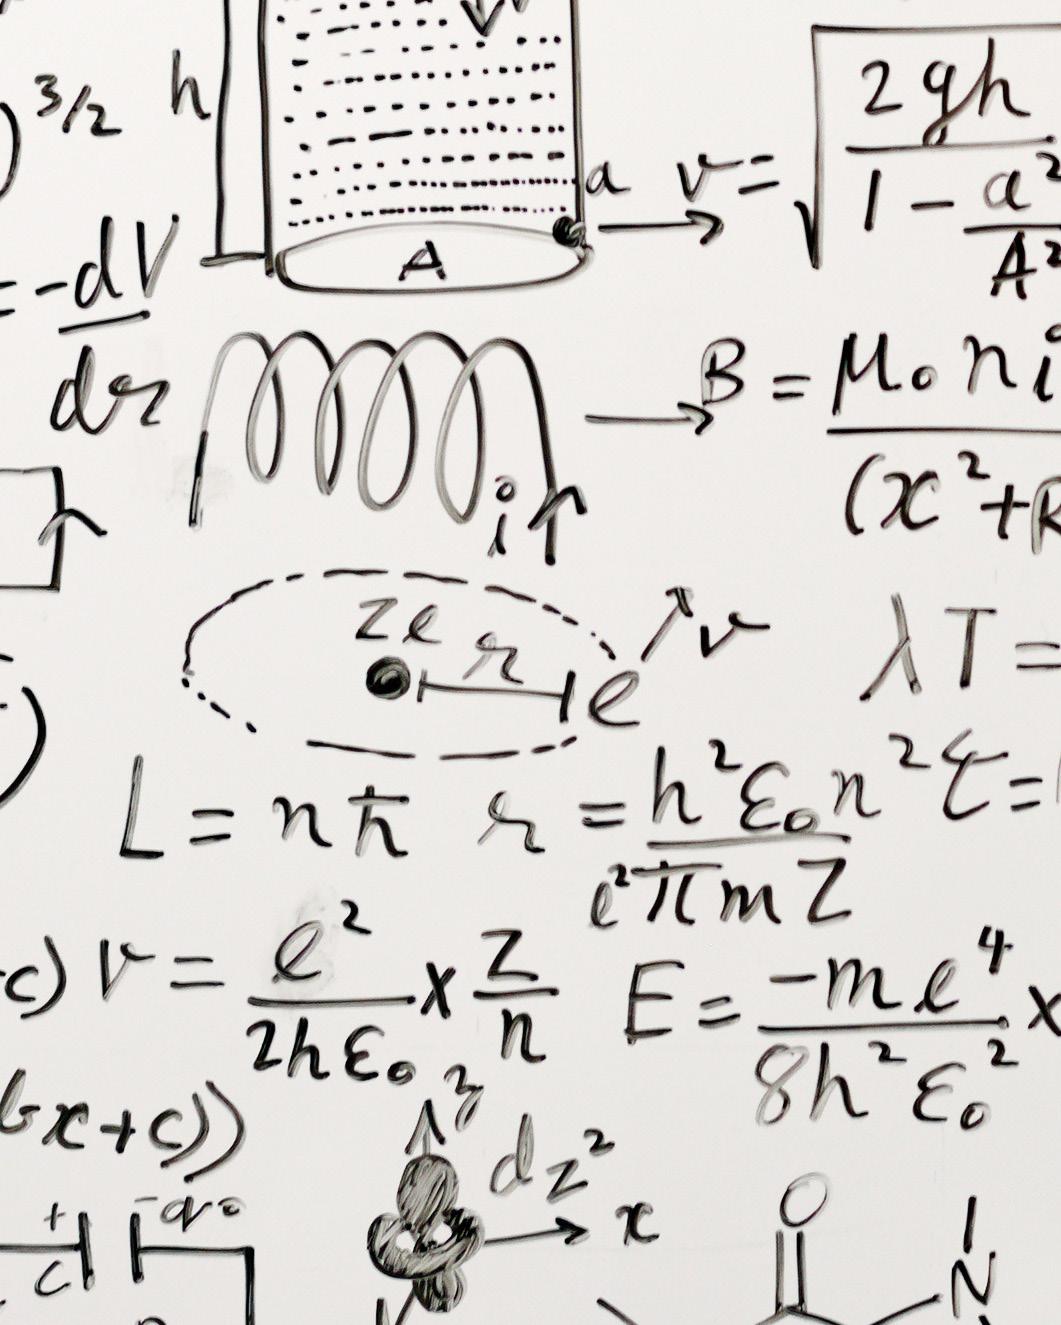 )^3/2 h
a v = √(2gh / (1 - a²/A²))
A
= -dV/dr
B = μ₀ni / (x²+R
i
Ze r e v λT =
L = nħ r = h²ε₀n² / e²πmZ τ =
c) v = e²/2hε₀ x Z/n E = -me⁴/8h²ε₀² x
bx+c))
z
dz²
+ - q₀ x O
C N